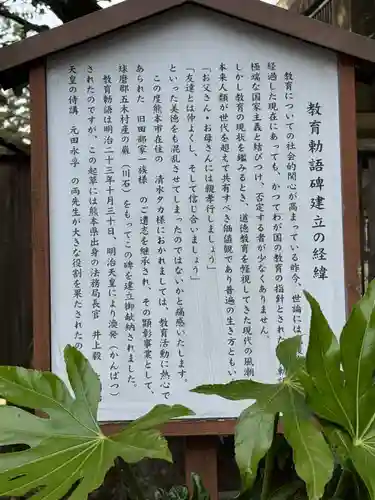 教育勅語碑建立の経緯
教育についての社会的関心が高まっている昨今、世論には
経過した現在にあっても、かつてわが国の教育の指針とされ
極端な国家主義と結びつけ、否定する者が少なくありません。
しかし教育の現状を鑑みるとき、道徳教育を軽視してきた現代の風潮
本来人類が世代を超えて共有すべき価値観であり普遍の生き方ともい
「お父さん・お母さんには親孝行しましょう」
「友達とは仲よくし、そして信じ合いましょう」
といった美徳をも混乱させてしまったのではないかと痛感いたします。
この度熊本市在住の 清水タカ様におかれましては、教育活動に熱心で
あられた 旧田部家一族様 のご遺志を継承され、その顕彰事業として、
球磨郡五木村産の巌(川石)をもってこの碑を建立御献納されました。
教育勅語は明治二十三年十月三十日、明治天皇により渙発(かんぱつ)
されたのですが、この起草には熊本県出身の法務局長官 井上毅
天皇の侍講 元田永孚 の両先生が大きな役割を果たされたの